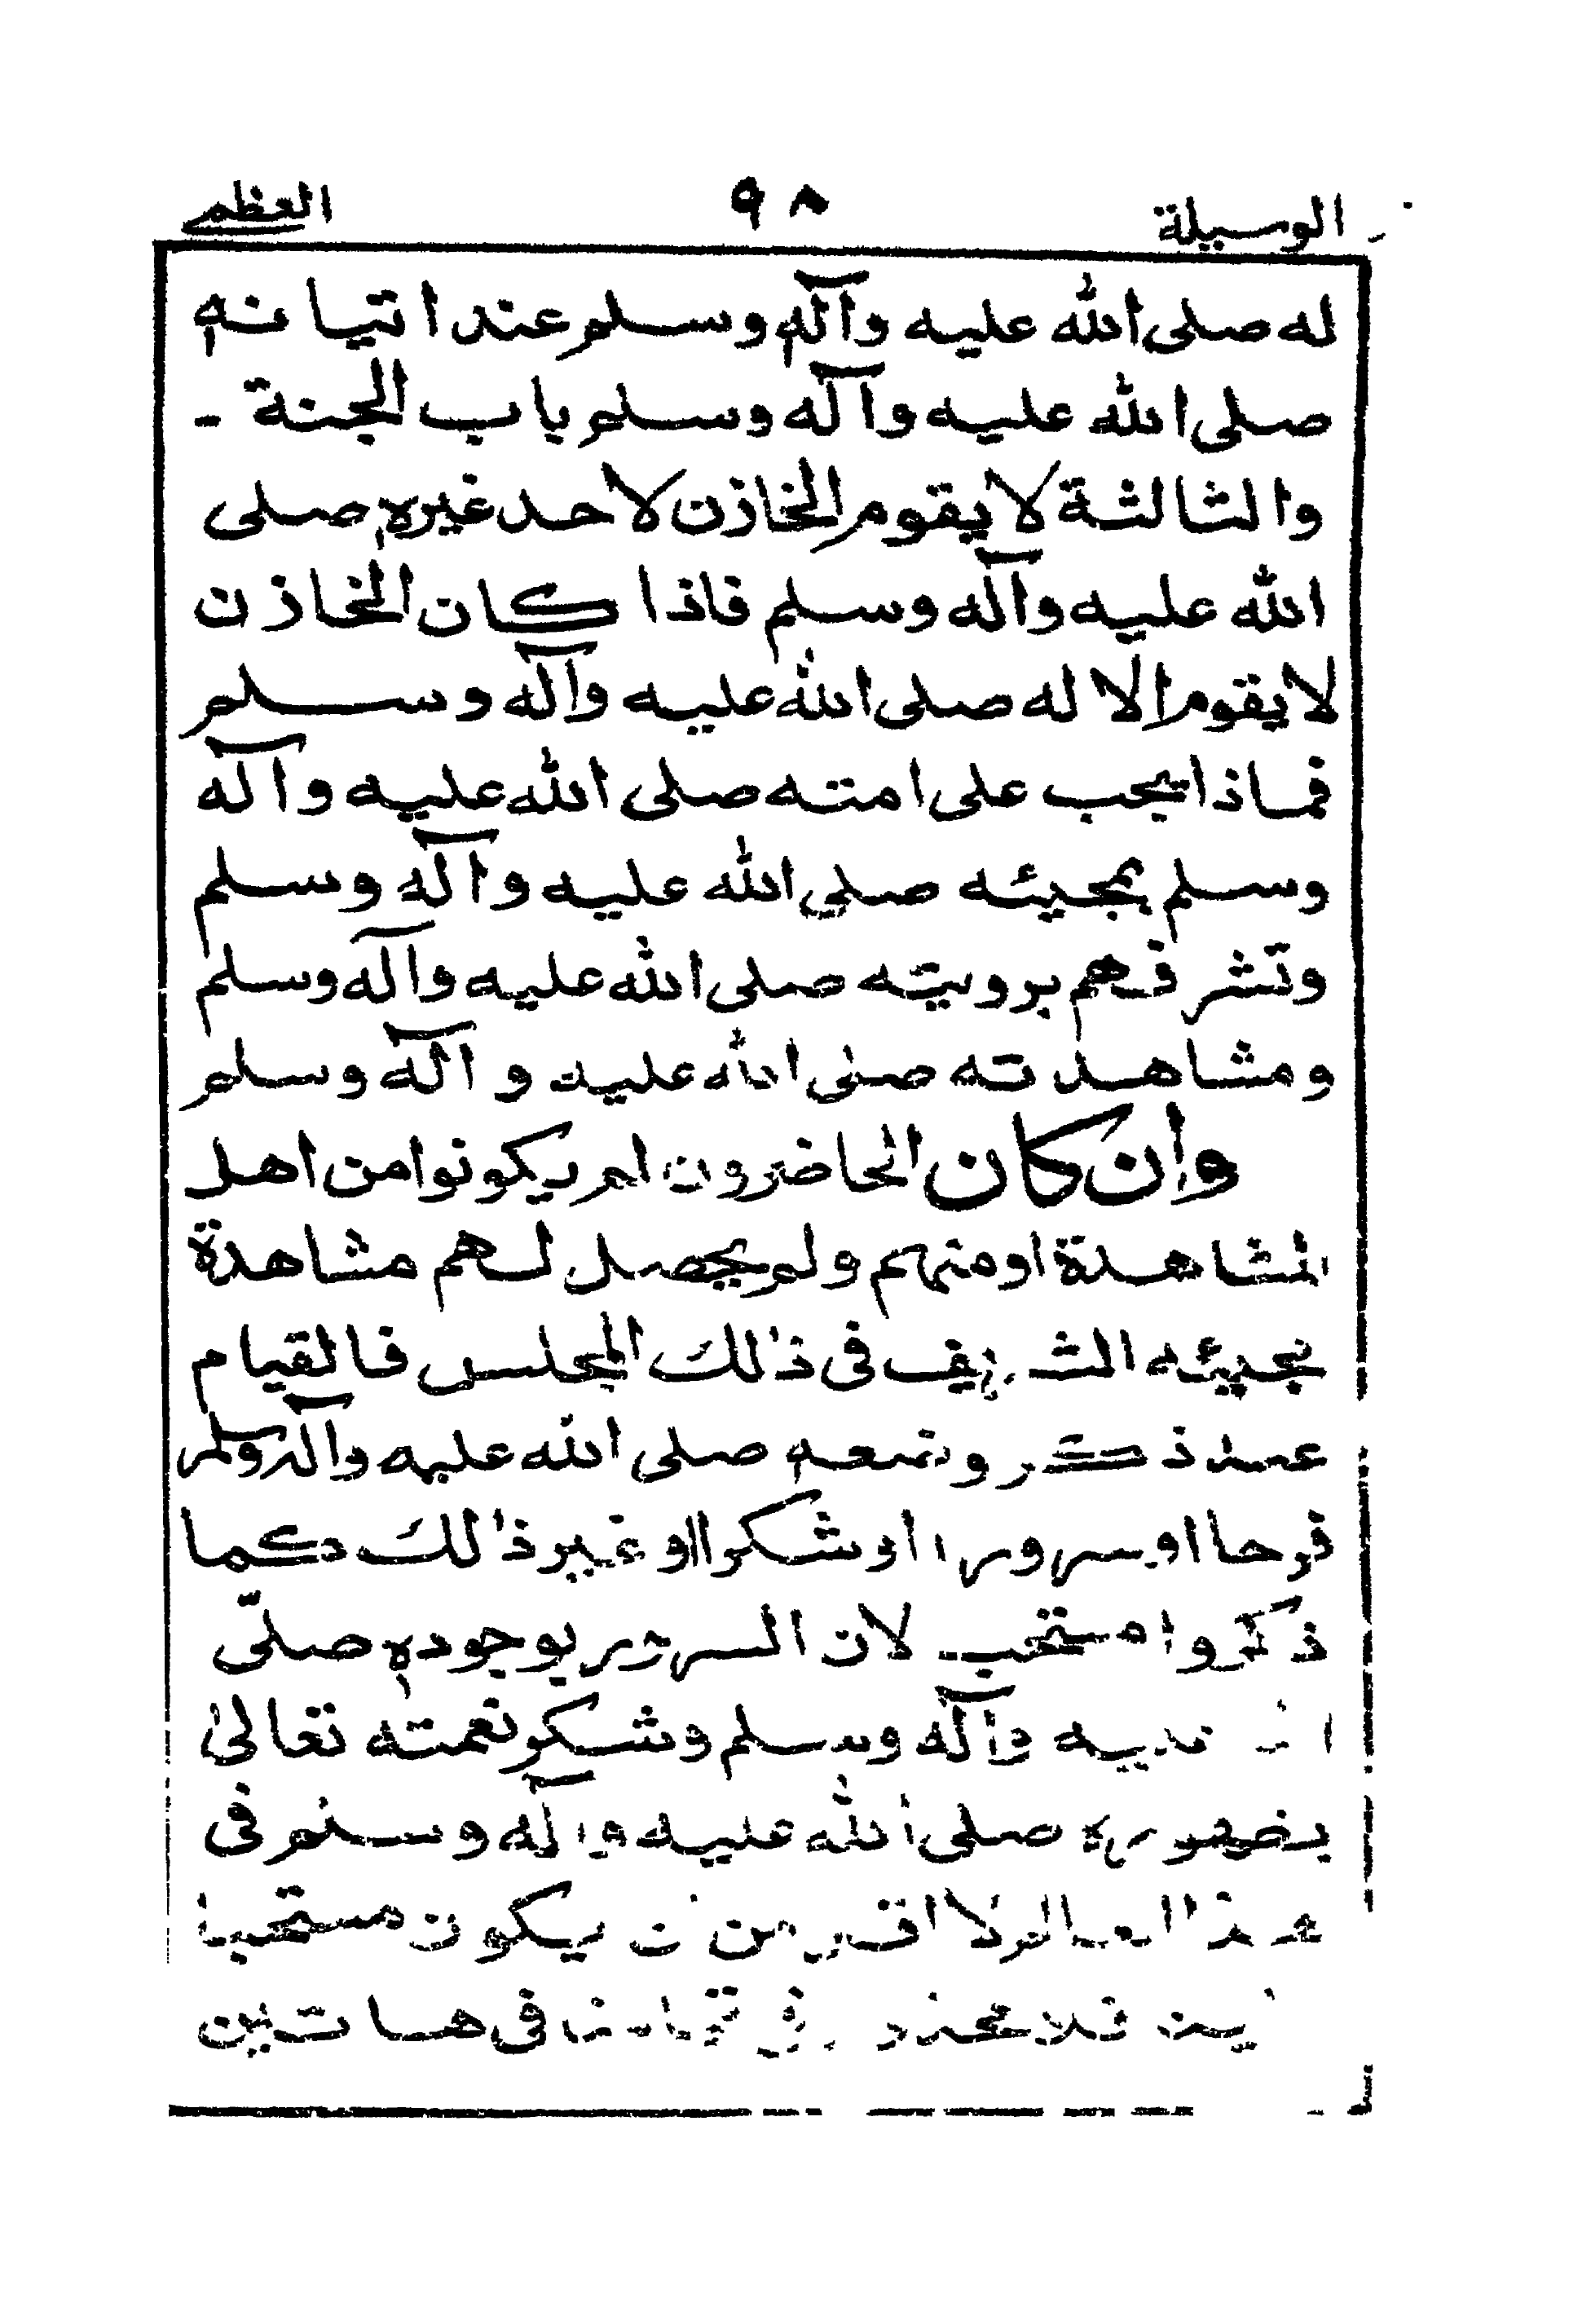 الوسيلة ٩٨ العظمى
له صلى الله عليه وآله وسلم عند اتيانه
صلى الله عليه وآله وسلم باب الجنة -
والثالثة لا يقوم الخازن لاحد غيره صلى
الله عليه وآله وسلم فاذا كان الخازن
لا يقوم الا له صلى الله عليه وآله وسلم
فماذا يجب على امته صلى الله عليه وآله
وسلم بمجيئه صلى الله عليه وآله وسلم
وتشرفهم برويته صلى الله عليه وآله وسلم
ومشاهدته صلى الله عليه وآله وسلم
وان كان الحاضرون لم يكونوا من اهل
المشاهدة او منهم ولم يحصل لهم مشاهدة
مجيئه الشريف في ذلك المجلس فالقيام
عند ذكر ونعته صلى الله عليه وآله وسلم
فرحا او سرورا او شكرا او غير ذلك كما
ذكروا مستحب لان السرور بوجوده صلّى
عليه وآله وسلم وشكر نعمته تعالى
بظهوره صلى الله عليه وآله وسلم في
هذا العالم لا اقل من ان يكون مستحبا
فلا في هاتين